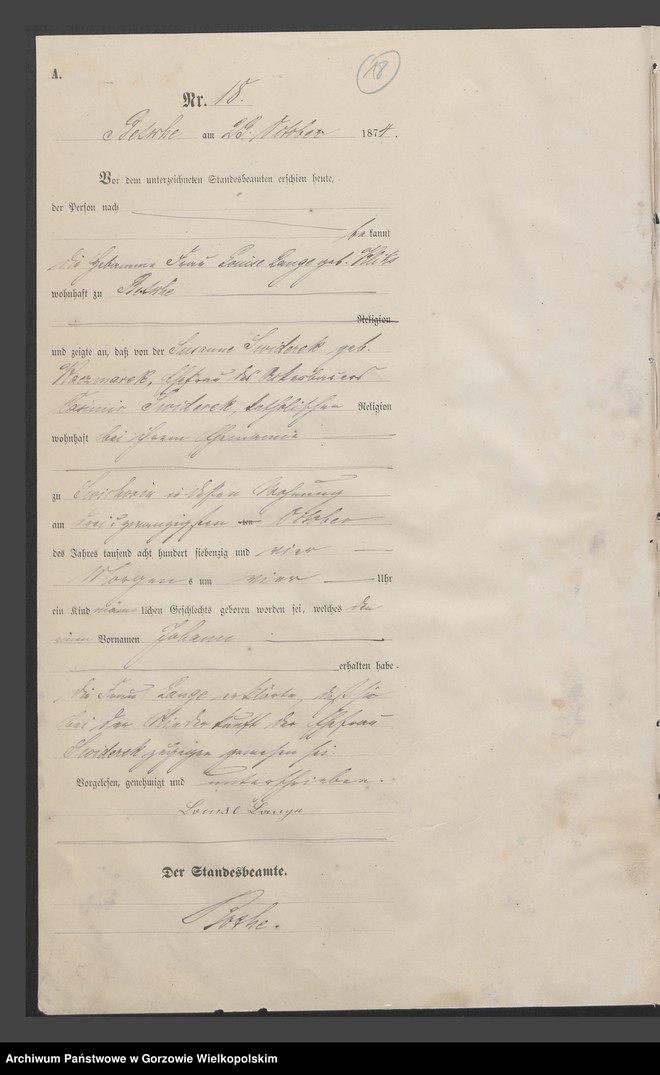 A.
18
Nr. 18.
Betsche am 26. October 1874.
Vor dem unterzeichneten Standesbeamten erschien heute,
der Person nach
be kannt
die Hebamme Frau Louise Lange geb.
wohnhaft zu Betsche
Religion
und zeigte an, daß von der Susanne Swiderek geb.
Kaczmarek, Ehefrau des
Casimir Swiderek, katholischer Religion
wohnhaft bei ihrem Ehemanne
zu in dessen Wohnung
am drei u zwanzigsten ten October
des Jahres tausend acht hundert siebenzig und vier
Morgens um vier Uhr
ein Kind männlichen Geschlechts geboren worden sei, welches den
einen Vornamen Johann
erhalten habe.
Die Frau Lange erklärte, daß sie
bei der Niederkunft der Ehefrau
Swiderek zugegen gewesen sei.
Vorgelesen, genehmigt und unterschrieben.
Louise Lange
Der Standesbeamte.
Archiwum Państwowe w Gorzowie Wielkopolskim